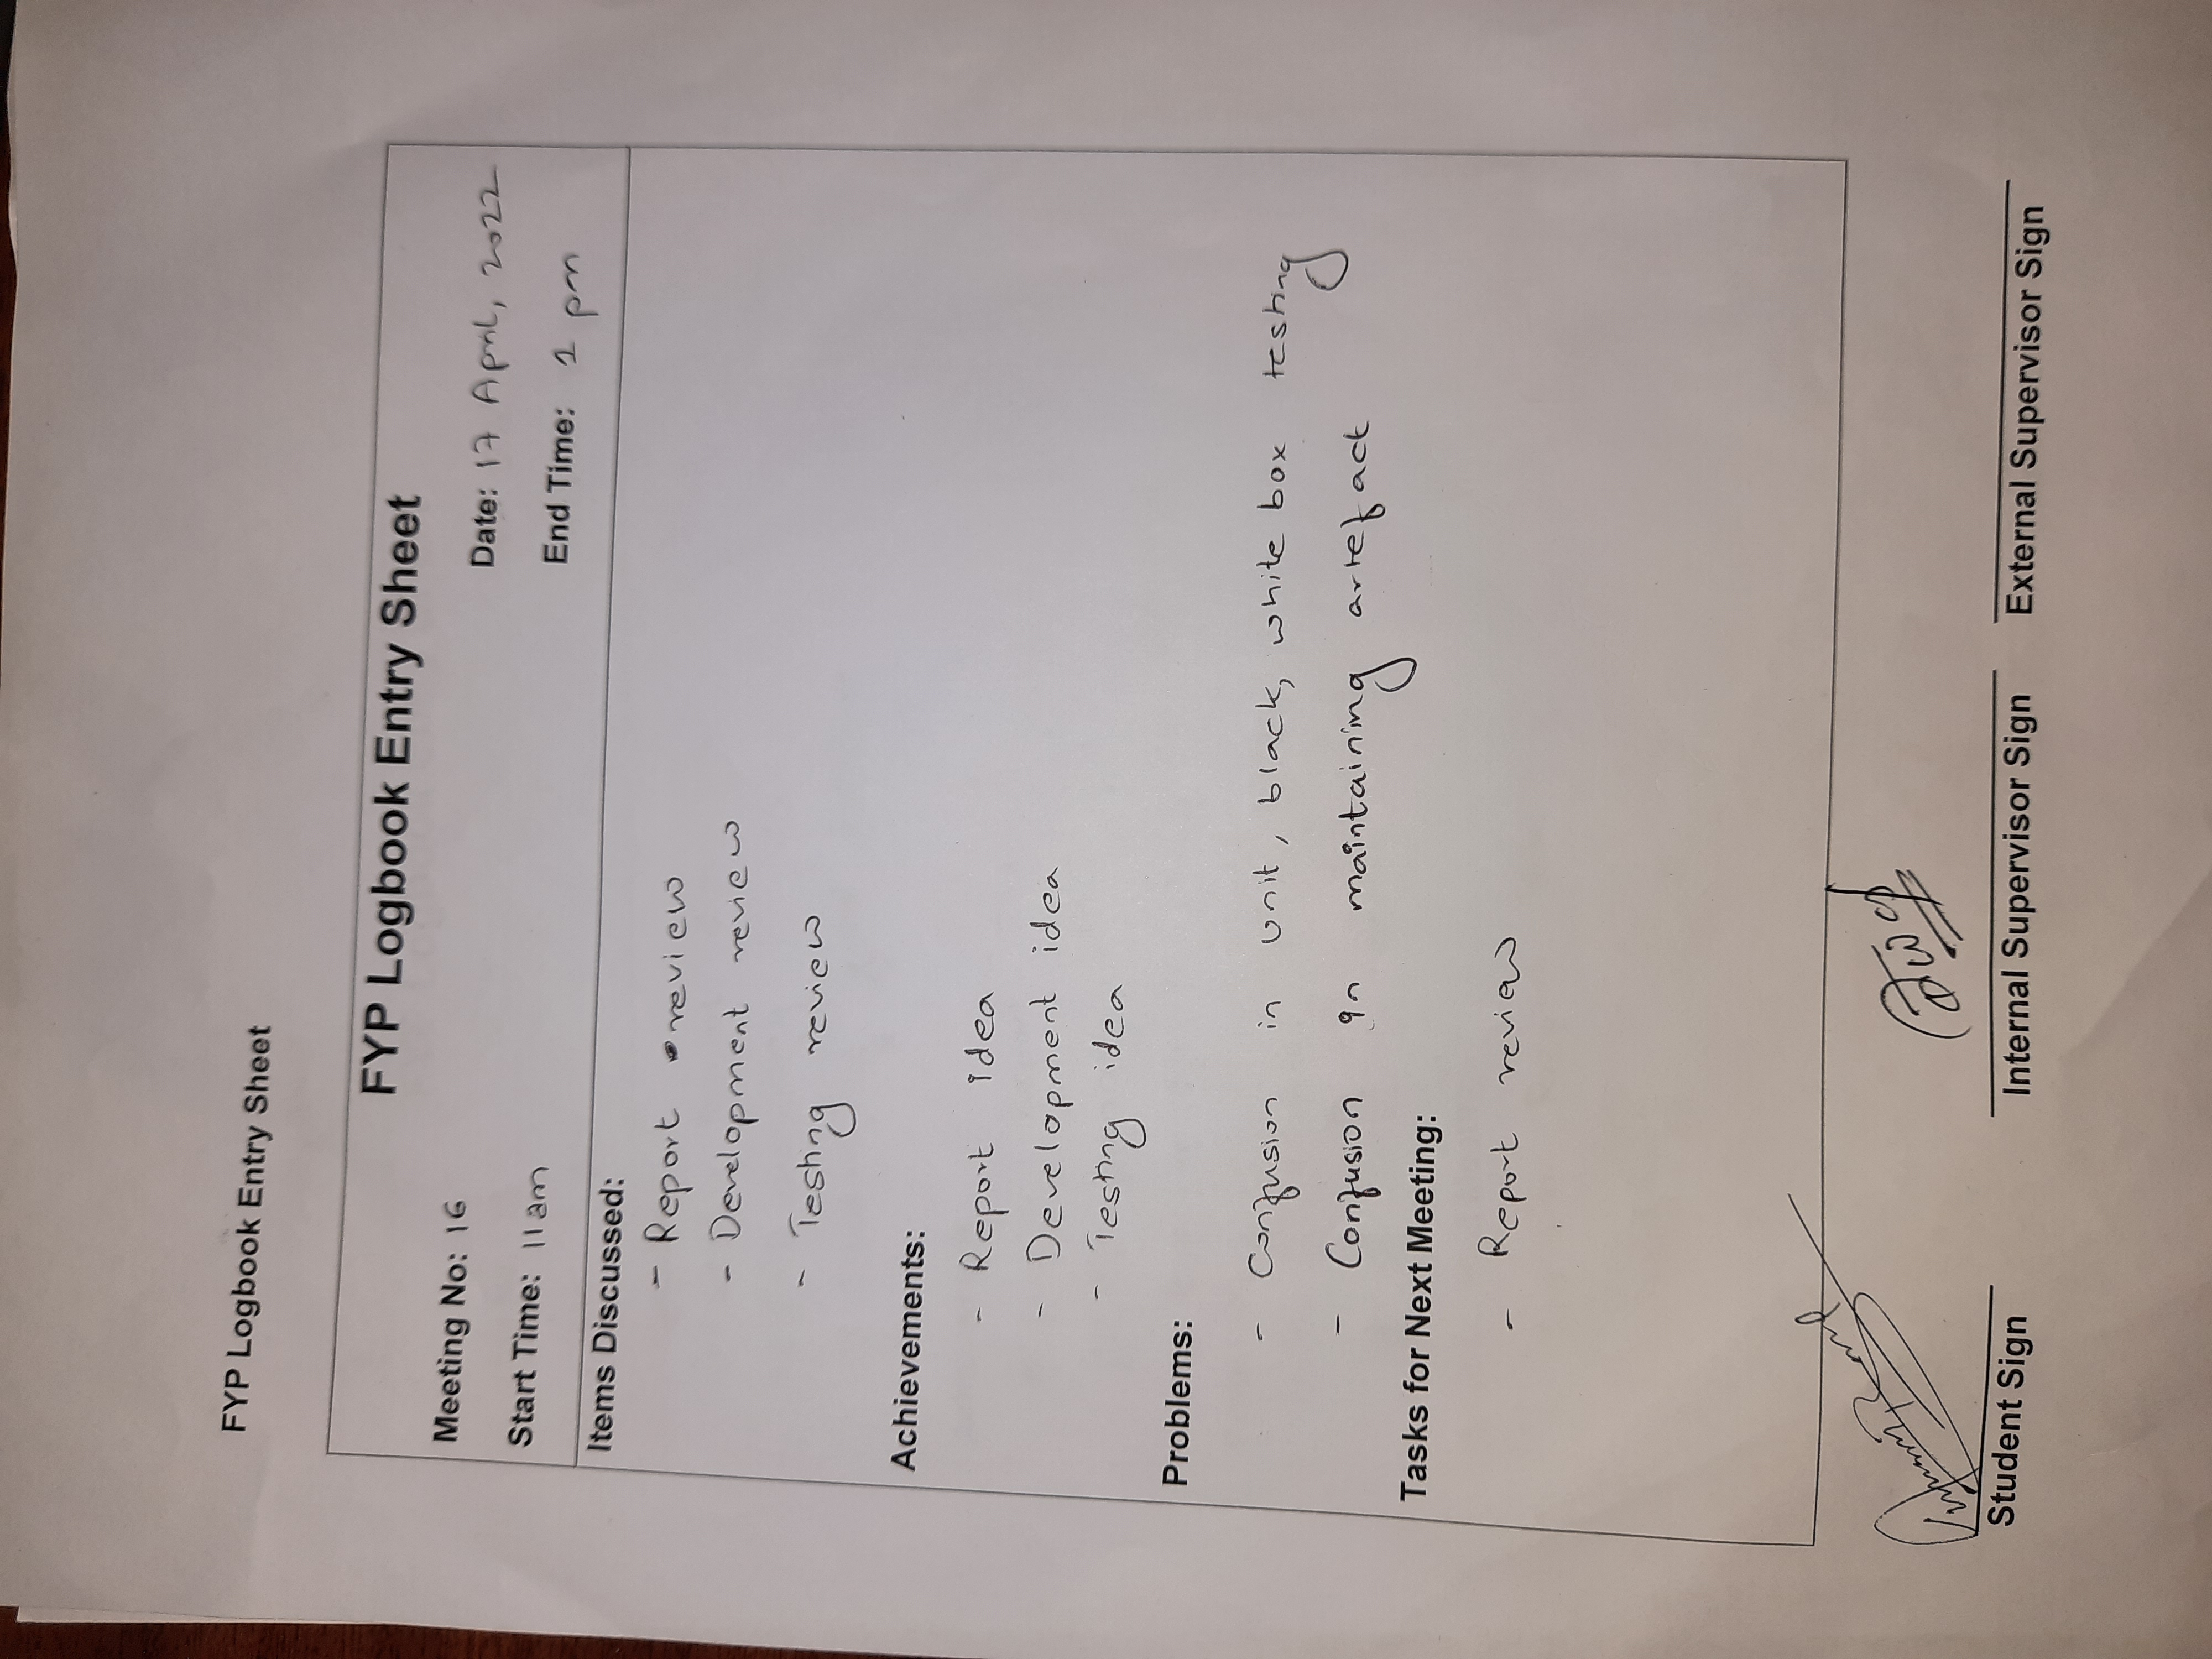 FYP Logbook Entry Sheet
FYP Logbook Entry Sheet
Meeting No: 16
Date: 17 April, 2022
Start Time: 11am
End Time: 1 pm
Items Discussed:
- Report review
- Development review
- Testing review
Achievements:
- Report idea
- Development idea
- Testing idea
Problems:
- Confusion in unit, black, white box testing
- Confusion in maintaining artefact
Tasks for Next Meeting:
- Report review
Student Sign
Internal Supervisor Sign
External Supervisor Sign